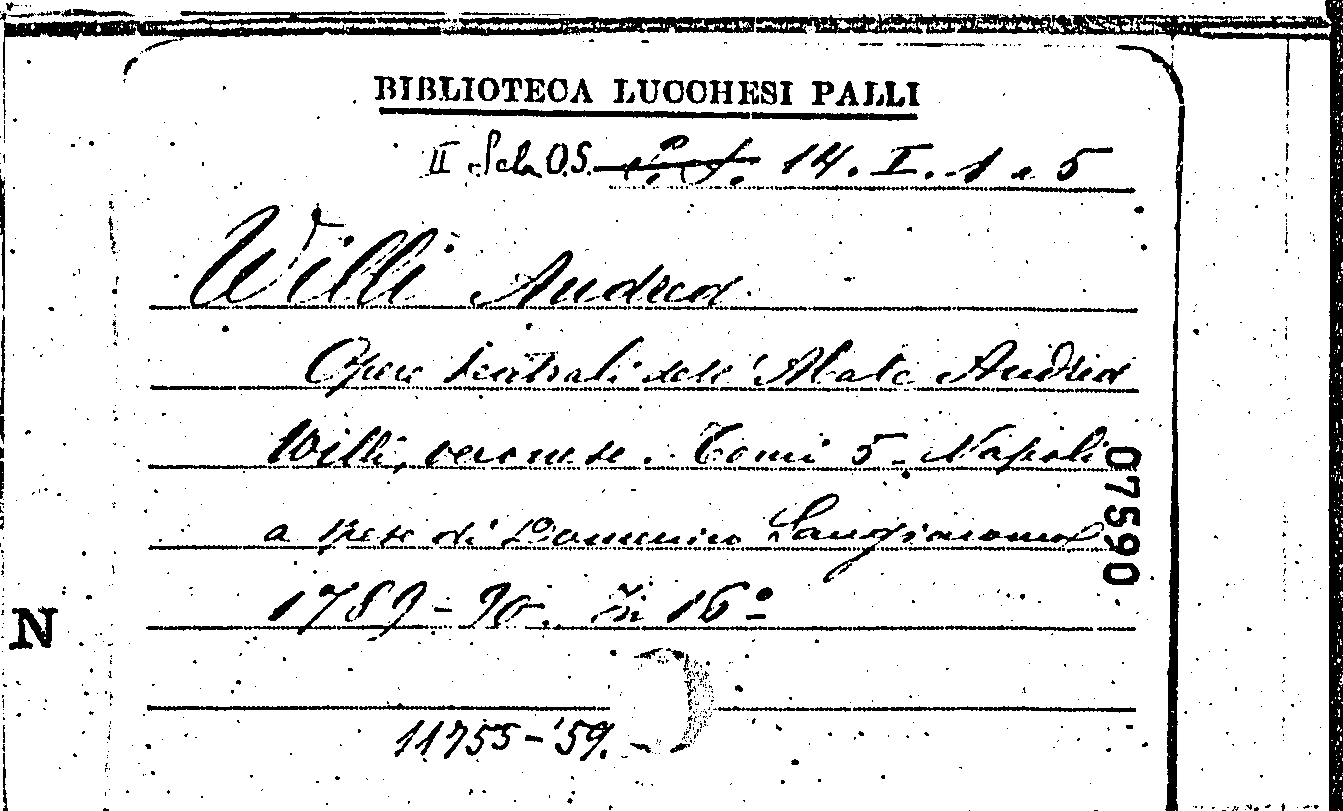 BIBLIOTECA LUCCHESI PALLI
II Sala O.S. 14. I. 1 a 5
Willi Andrea
Opere teatrali dell'Abate Andrea
Willi, veronese. Tomi 5. Napoli
a spese di Domenico Sangiacomo
1789-90. In 16º
11755-'59.
07590
N